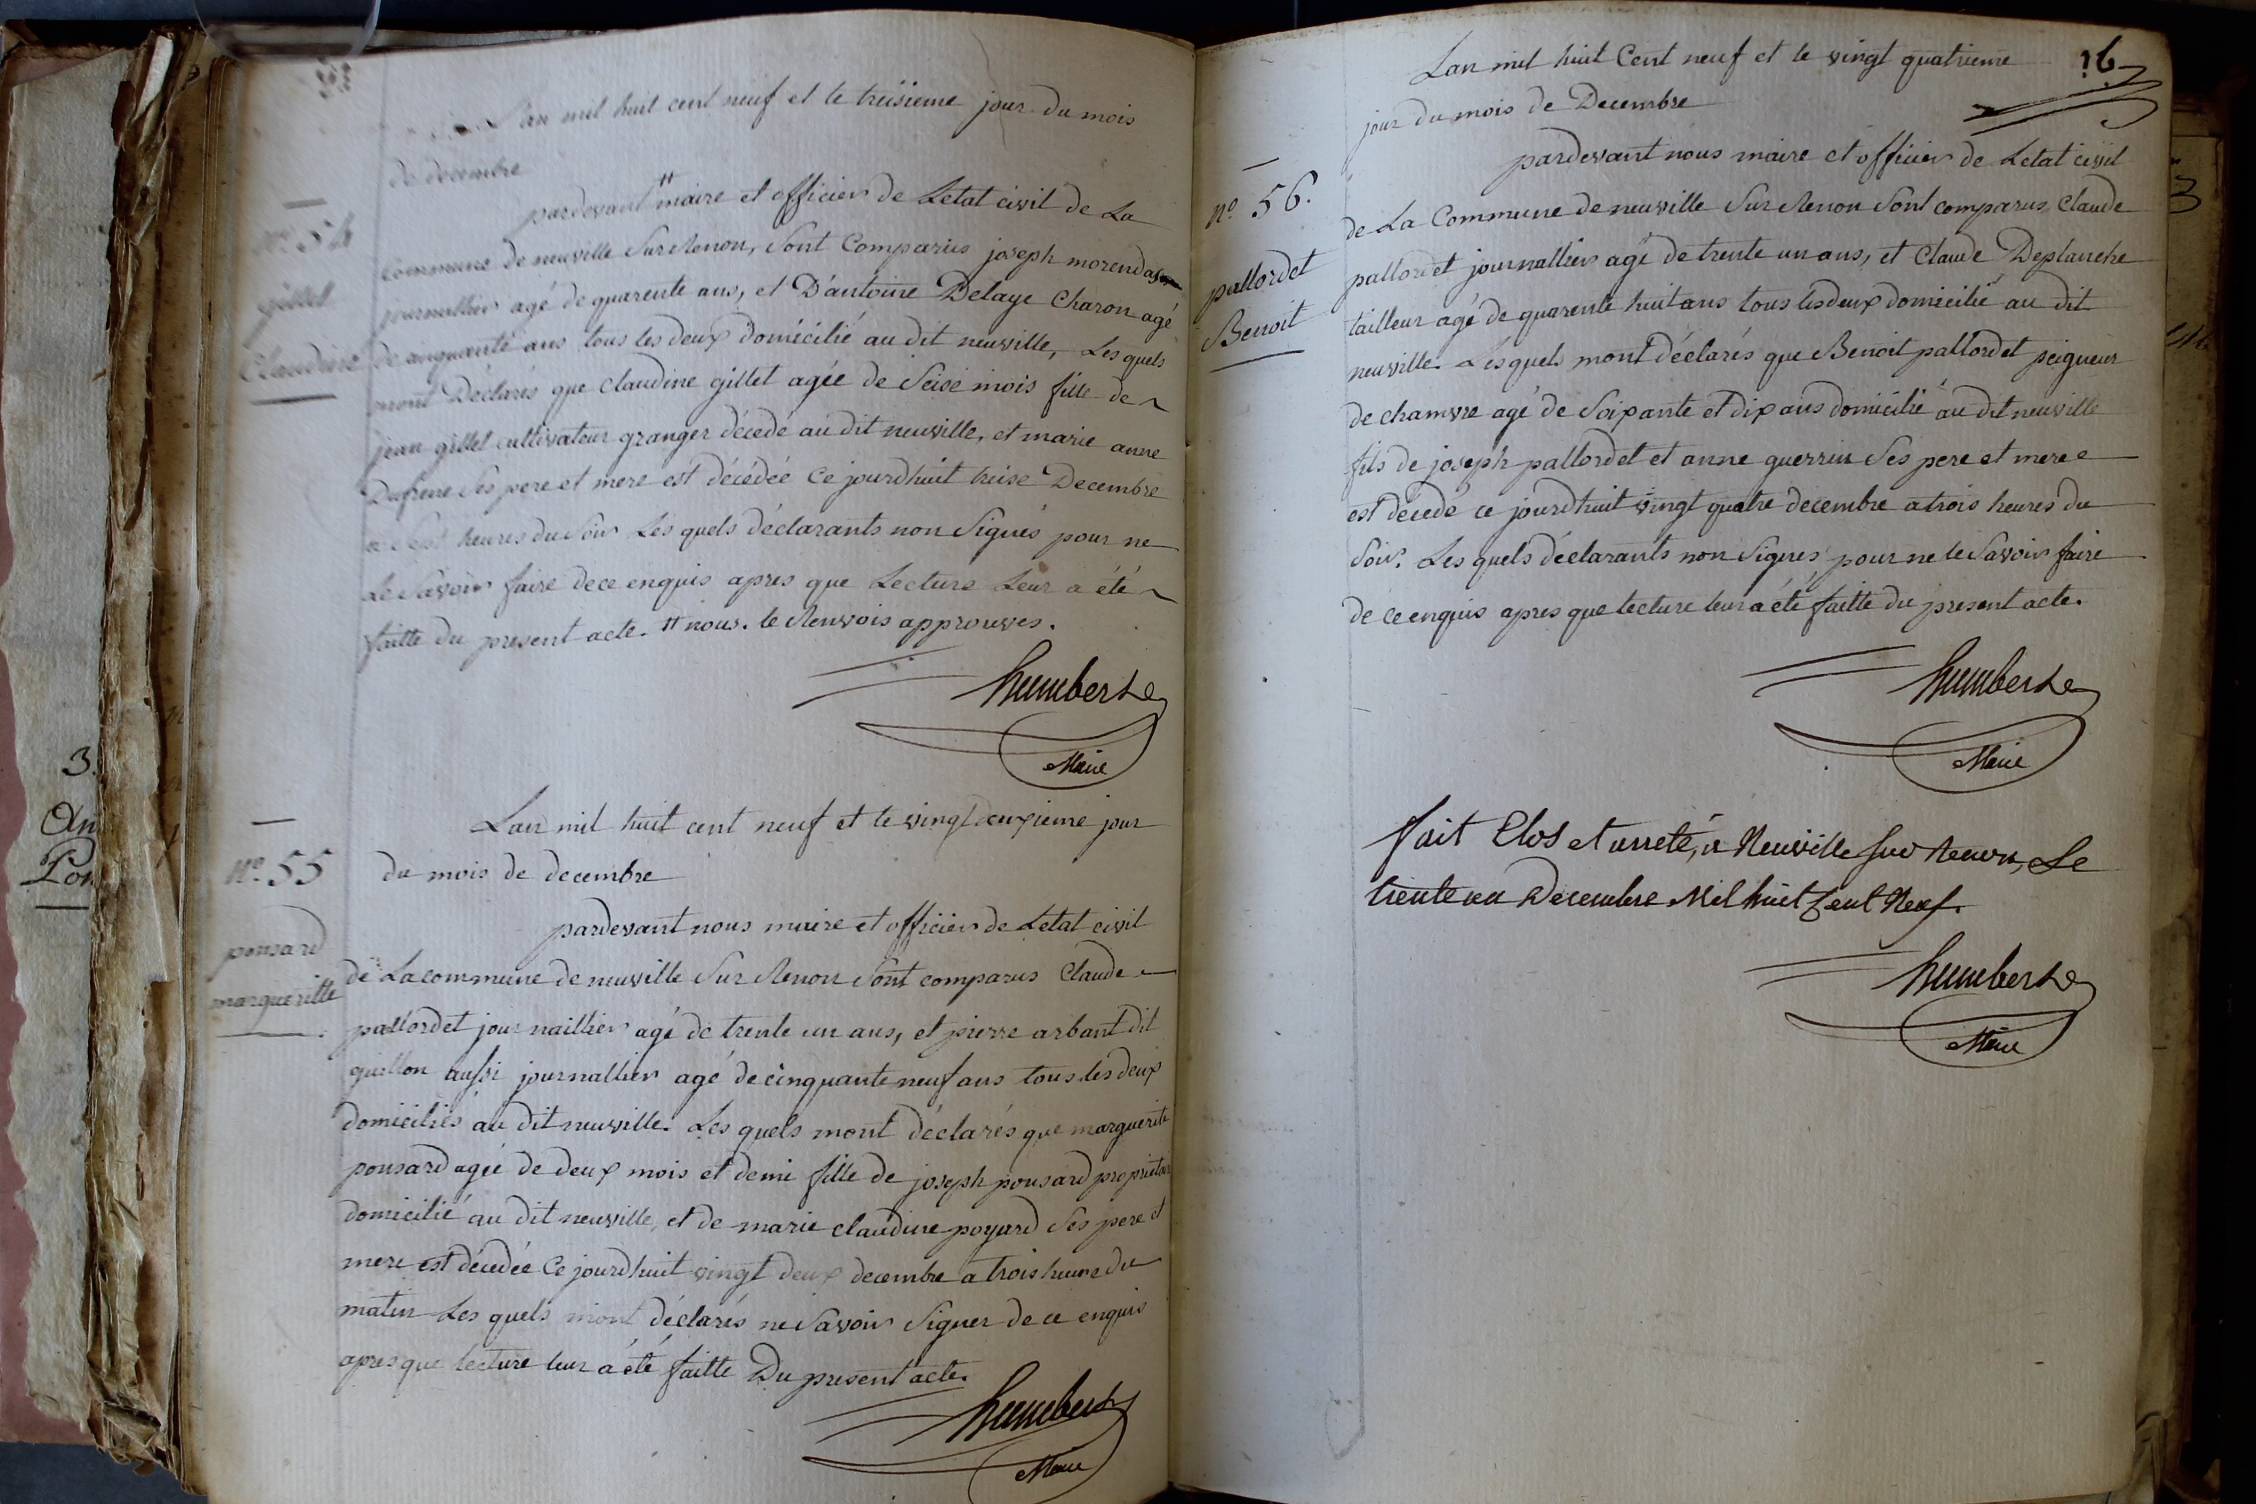 Lan mil huit cent neuf et le treisieme jour du mois
de decembre
pardevant # maire et officier de Letat civil de La
n° 54
gillet
Claudine
commune de neuville Sur Renon, Sont Comparus joseph morendas
journallier agé de quarente ans, et D'antoine Delaye Charon agé
de cinquante ans tous les deux domicilié au dit neuville, Les quels
mont Déclarés que Claudine gillet agée de Seise mois fille de
jean gillet cultivateur granger décédé au dit neuville, et marie anne
Dufrene Ses pere et mere est décédée Ce jourdhuit treise Decembre
heures du Soir Les quels déclarants non Signés pour ne
Le Savoir faire dece enquis apres que Lecture Leur a été
faitte du present acte. # nous. le Renvois approuves.
humbert
Maire
Lan mil huit cent neuf et le vingt deuxieme jour
n° 55
du mois de decembre
ponsard
margueritte
pardevant nous maire et officier de Letat civil
de La commune de neuville Sur Renon Sont comparus Claude
pallordet journaillier agé de trente un ans, et pierre arbant dit
guillon aussi journallier agé de cinquante neuf ans tous les deux
domiciliés au dit neuville. Les quels mont déclarés que marguerite
ponsard agée de deux mois et demi fille de joseph ponsard proprietair
domicilié au dit neuville, et de marie claudine poyard Ses pere et
mere est décédée Ce jourdhuit vingt deux decembre a trois heure du
matin Les quels mont déclarés ne Savoir Signer de ce enquis
apres que lecture leur a été faitte Du present acte.
humbert
Maire
16
Lan mil huit Cent neuf et le vingt quatrieme
jour du mois de Decembre
pardevant nous maire et officier de Letat civil
n° 56.
pallordet
Benoit
de La Commune de neuville Sur Renon Sont comparus Claude
pallordet journallier agé de trente un ans, et Claude Deplanche
tailleur agé de quarente huit ans tous les deux domicilié au dit
neuville. Les quels mont déclarés que Benoit pallordet peigneur
de chamvre agé de Soixante et dix ans domicilié au dit neuville
fils de joseph pallordet et anne guerrin Ses pere et mere
est décedé ce jourdhuit vingt quatre decembre a trois heures du
Soir. Les quels déclarants non Signés pour ne le Savoir faire
de ce enquis apres que lecture leur a été faitte du present acte.
humbert
Maire
fait Clos et arreté, a Neuville Sur Renon, Le
trente un Decembre Mil huit Cent Neuf.
humbert
Maire
3.
An
Pon